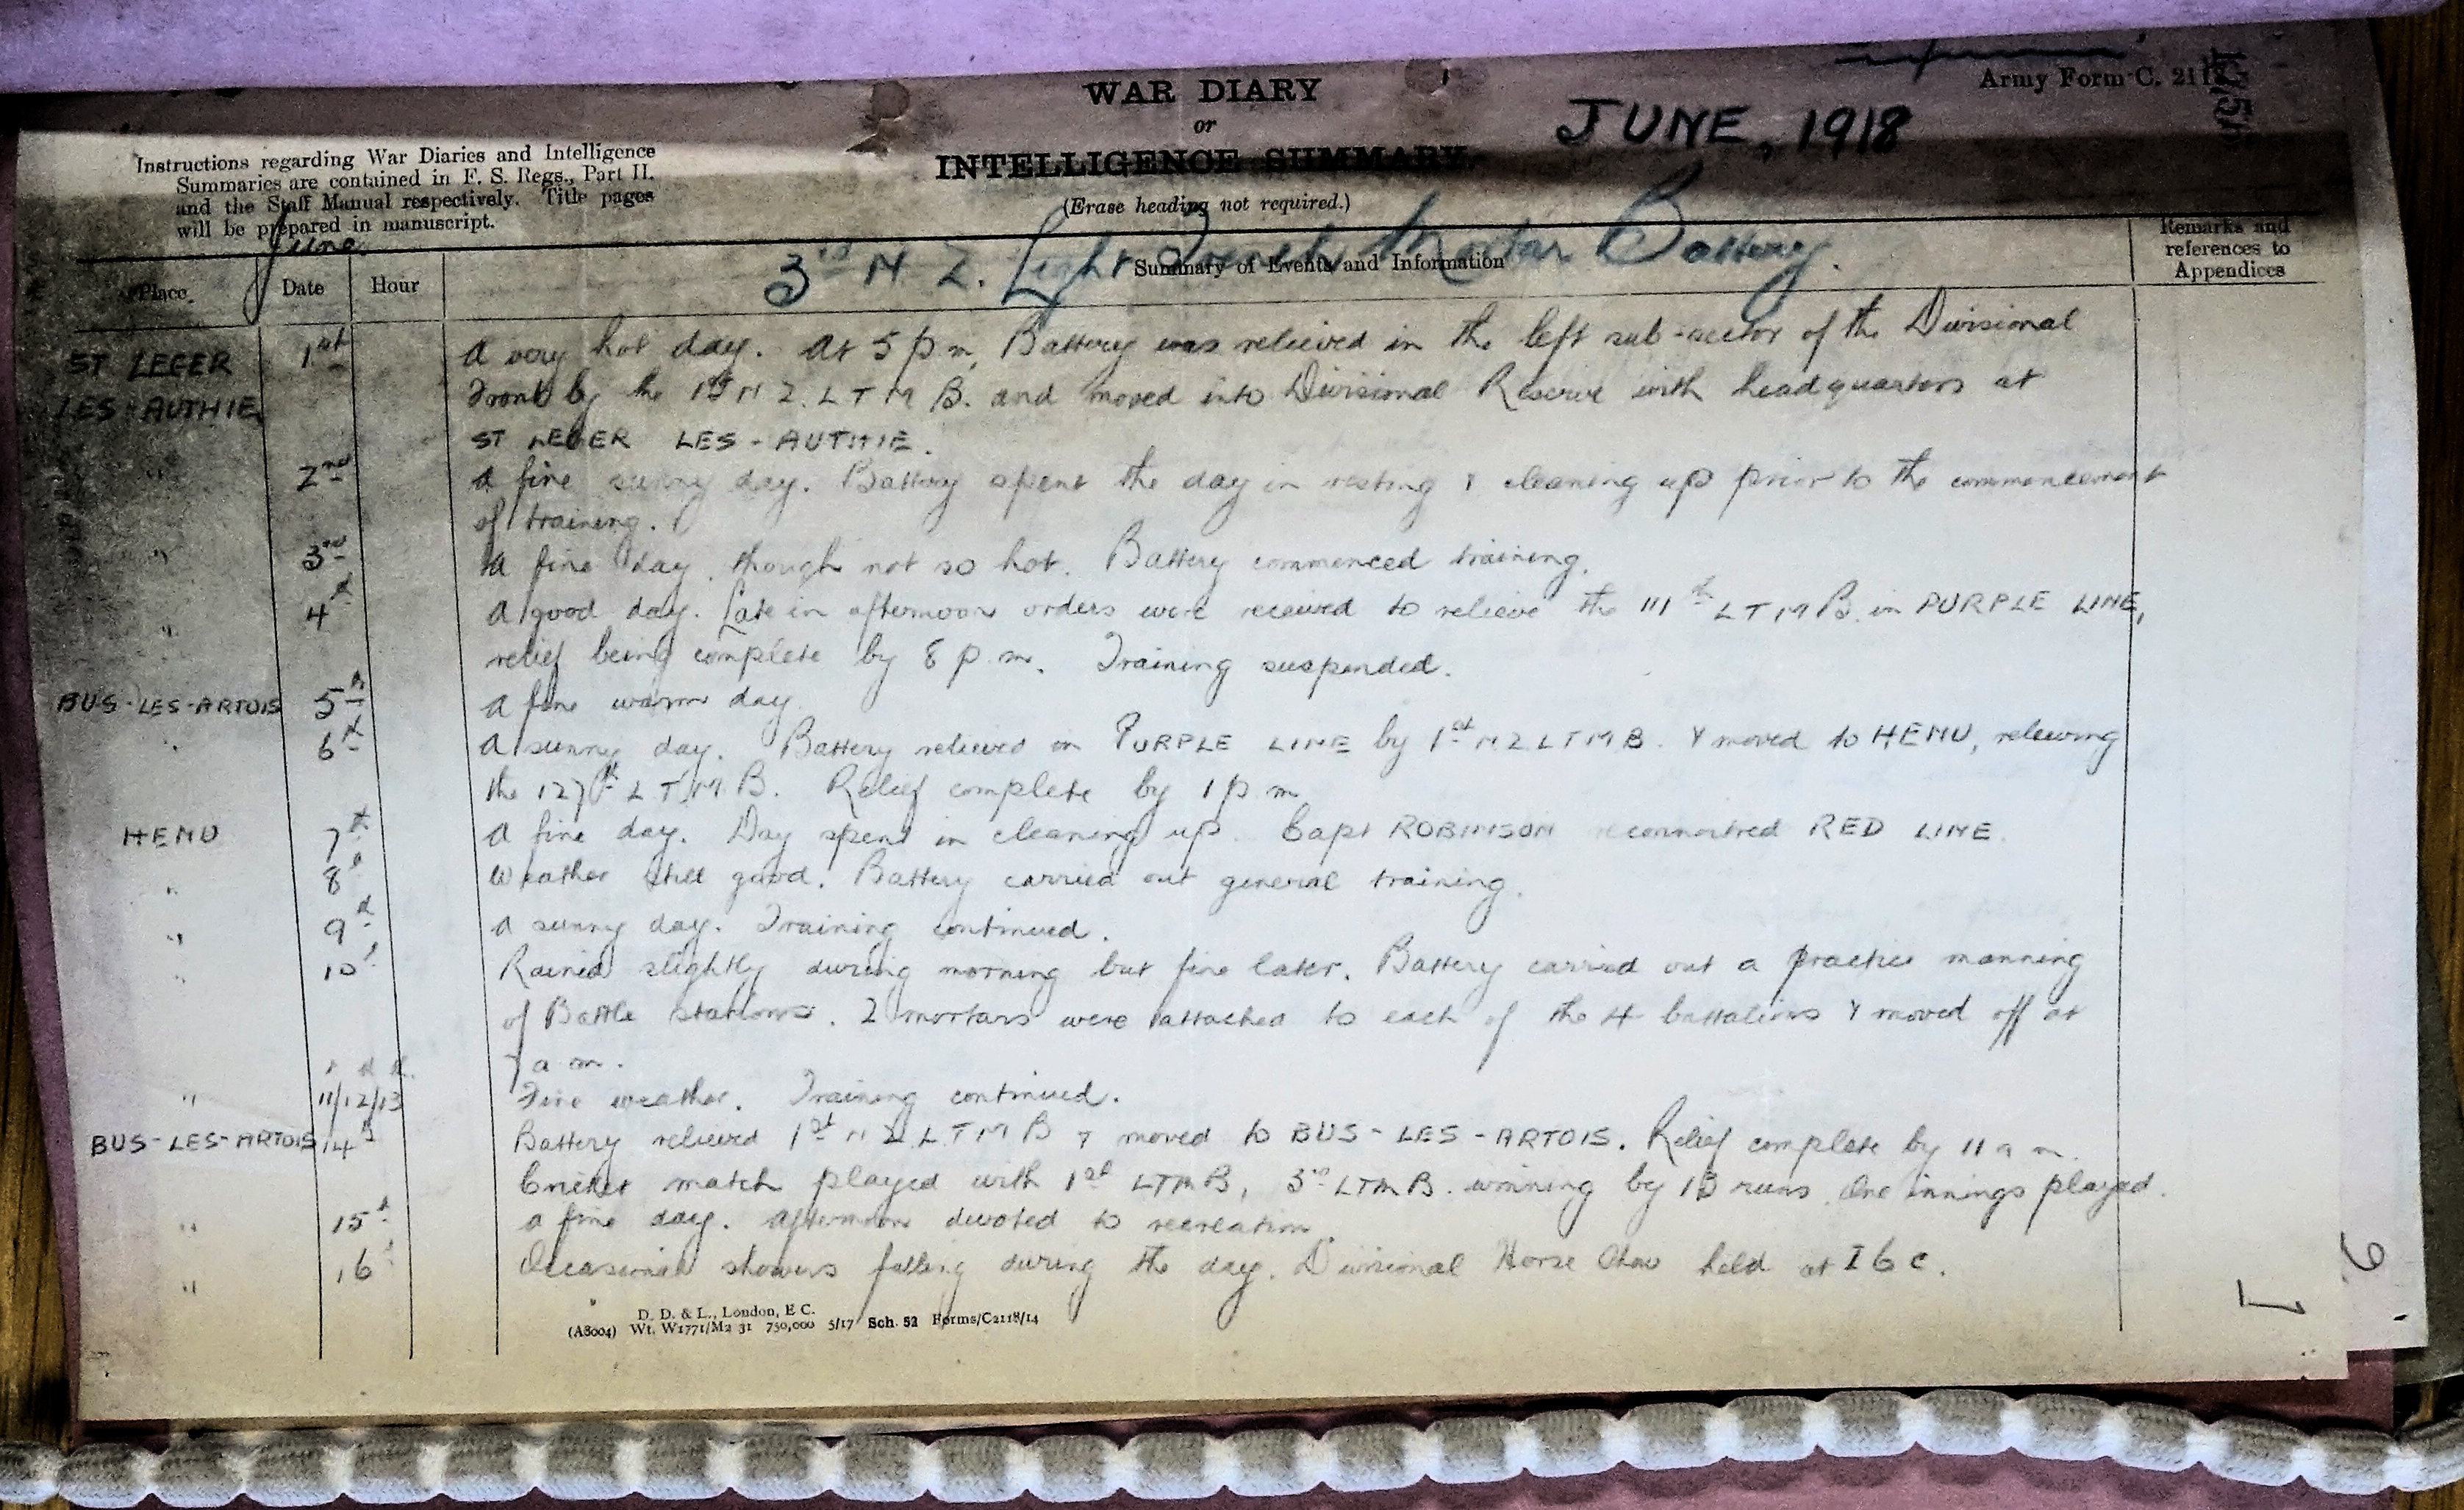 Army Form C. 2118
WAR DIARY
or
INTELLIGENCE SUMMARY.
JUNE, 1918
(Erase heading not required.)
Instructions regarding War Diaries and Intelligence
Summaries are contained in F. S. Regs., Part II.
and the Staff Manual respectively. Title pages
will be prepared in manuscript.
June
3rd N Z. Light Trench Mortar Battery.
Place. Date Hour Summary of Events and Information Remarks and references to Appendices
ST LEGER 1st A very hot day. At 5 p m Battery was relieved in the left sub-sector of the Divisional
LES-AUTHIE Front by the 1st N Z. L T M B. and moved into Divisional Reserve with headquarters at
ST LEGER LES-AUTHIE.
" 2nd A fine sunny day. Battery spent the day in resting & cleaning up prior to the commencement
of training.
" 3rd A fine day, though not so hot. Battery commenced training.
" 4th A good day. Late in afternoon orders were received to relieve the 111th L T M B. in PURPLE LINE,
relief being complete by 8 p.m. Training suspended.
BUS-LES-ARTOIS 5th A fine warm day.
" 6th A sunny day. Battery relieved in PURPLE LINE by 1st N Z L T M B. & moved to HENU, relieving
the 127th L T M B. Relief complete by 1 p m
HENU 7th A fine day. Day spent in cleaning up. Capt ROBINSON reconnoitred RED LINE.
" 8th Weather still good. Battery carried out general training.
" 9th A sunny day. Training continued.
" 10th Rained slightly during morning but fine later. Battery carried out a practice manning
of Battle stations. 2 mortars were attached to each of the 4 battalions & moved off at
7 a m.
" 11/12/13th Fine weather. Training continued.
BUS-LES-ARTOIS 14th Battery relieved 1st N Z L T M B & moved to BUS-LES-ARTOIS. Relief complete by 11 a m.
Cricket match played with 1st LTMB, 3rd LTMB. winning by 13 runs. One innings played.
" 15th A fine day. Afternoon devoted to recreation.
" 16th Occasional showers falling during the day. Divisional Horse Show held at I 6 c.
D. D. & L., London, E C.
(A8004) Wt. W1771/M2 31 750,000 5/17 Sch. 52 Forms/C2118/14